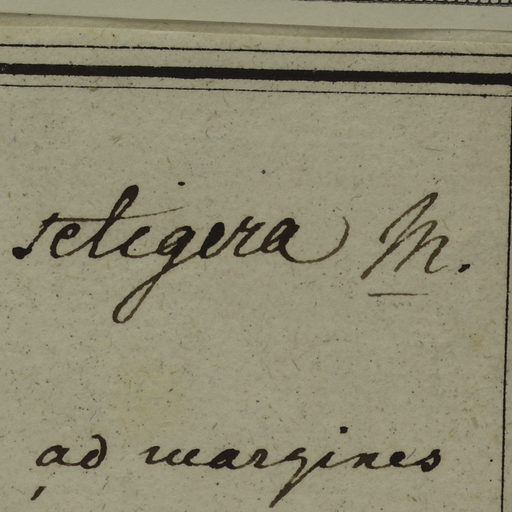 setigera M.
ad margines